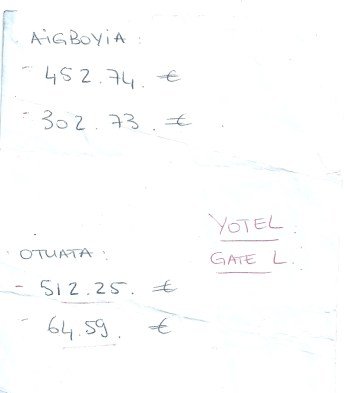 AiGBOViA :
- 452.74. €
- 302.73. €
YOTEL.
GATE L.
OTUATA :
- 512.25. €
- 64.59. €